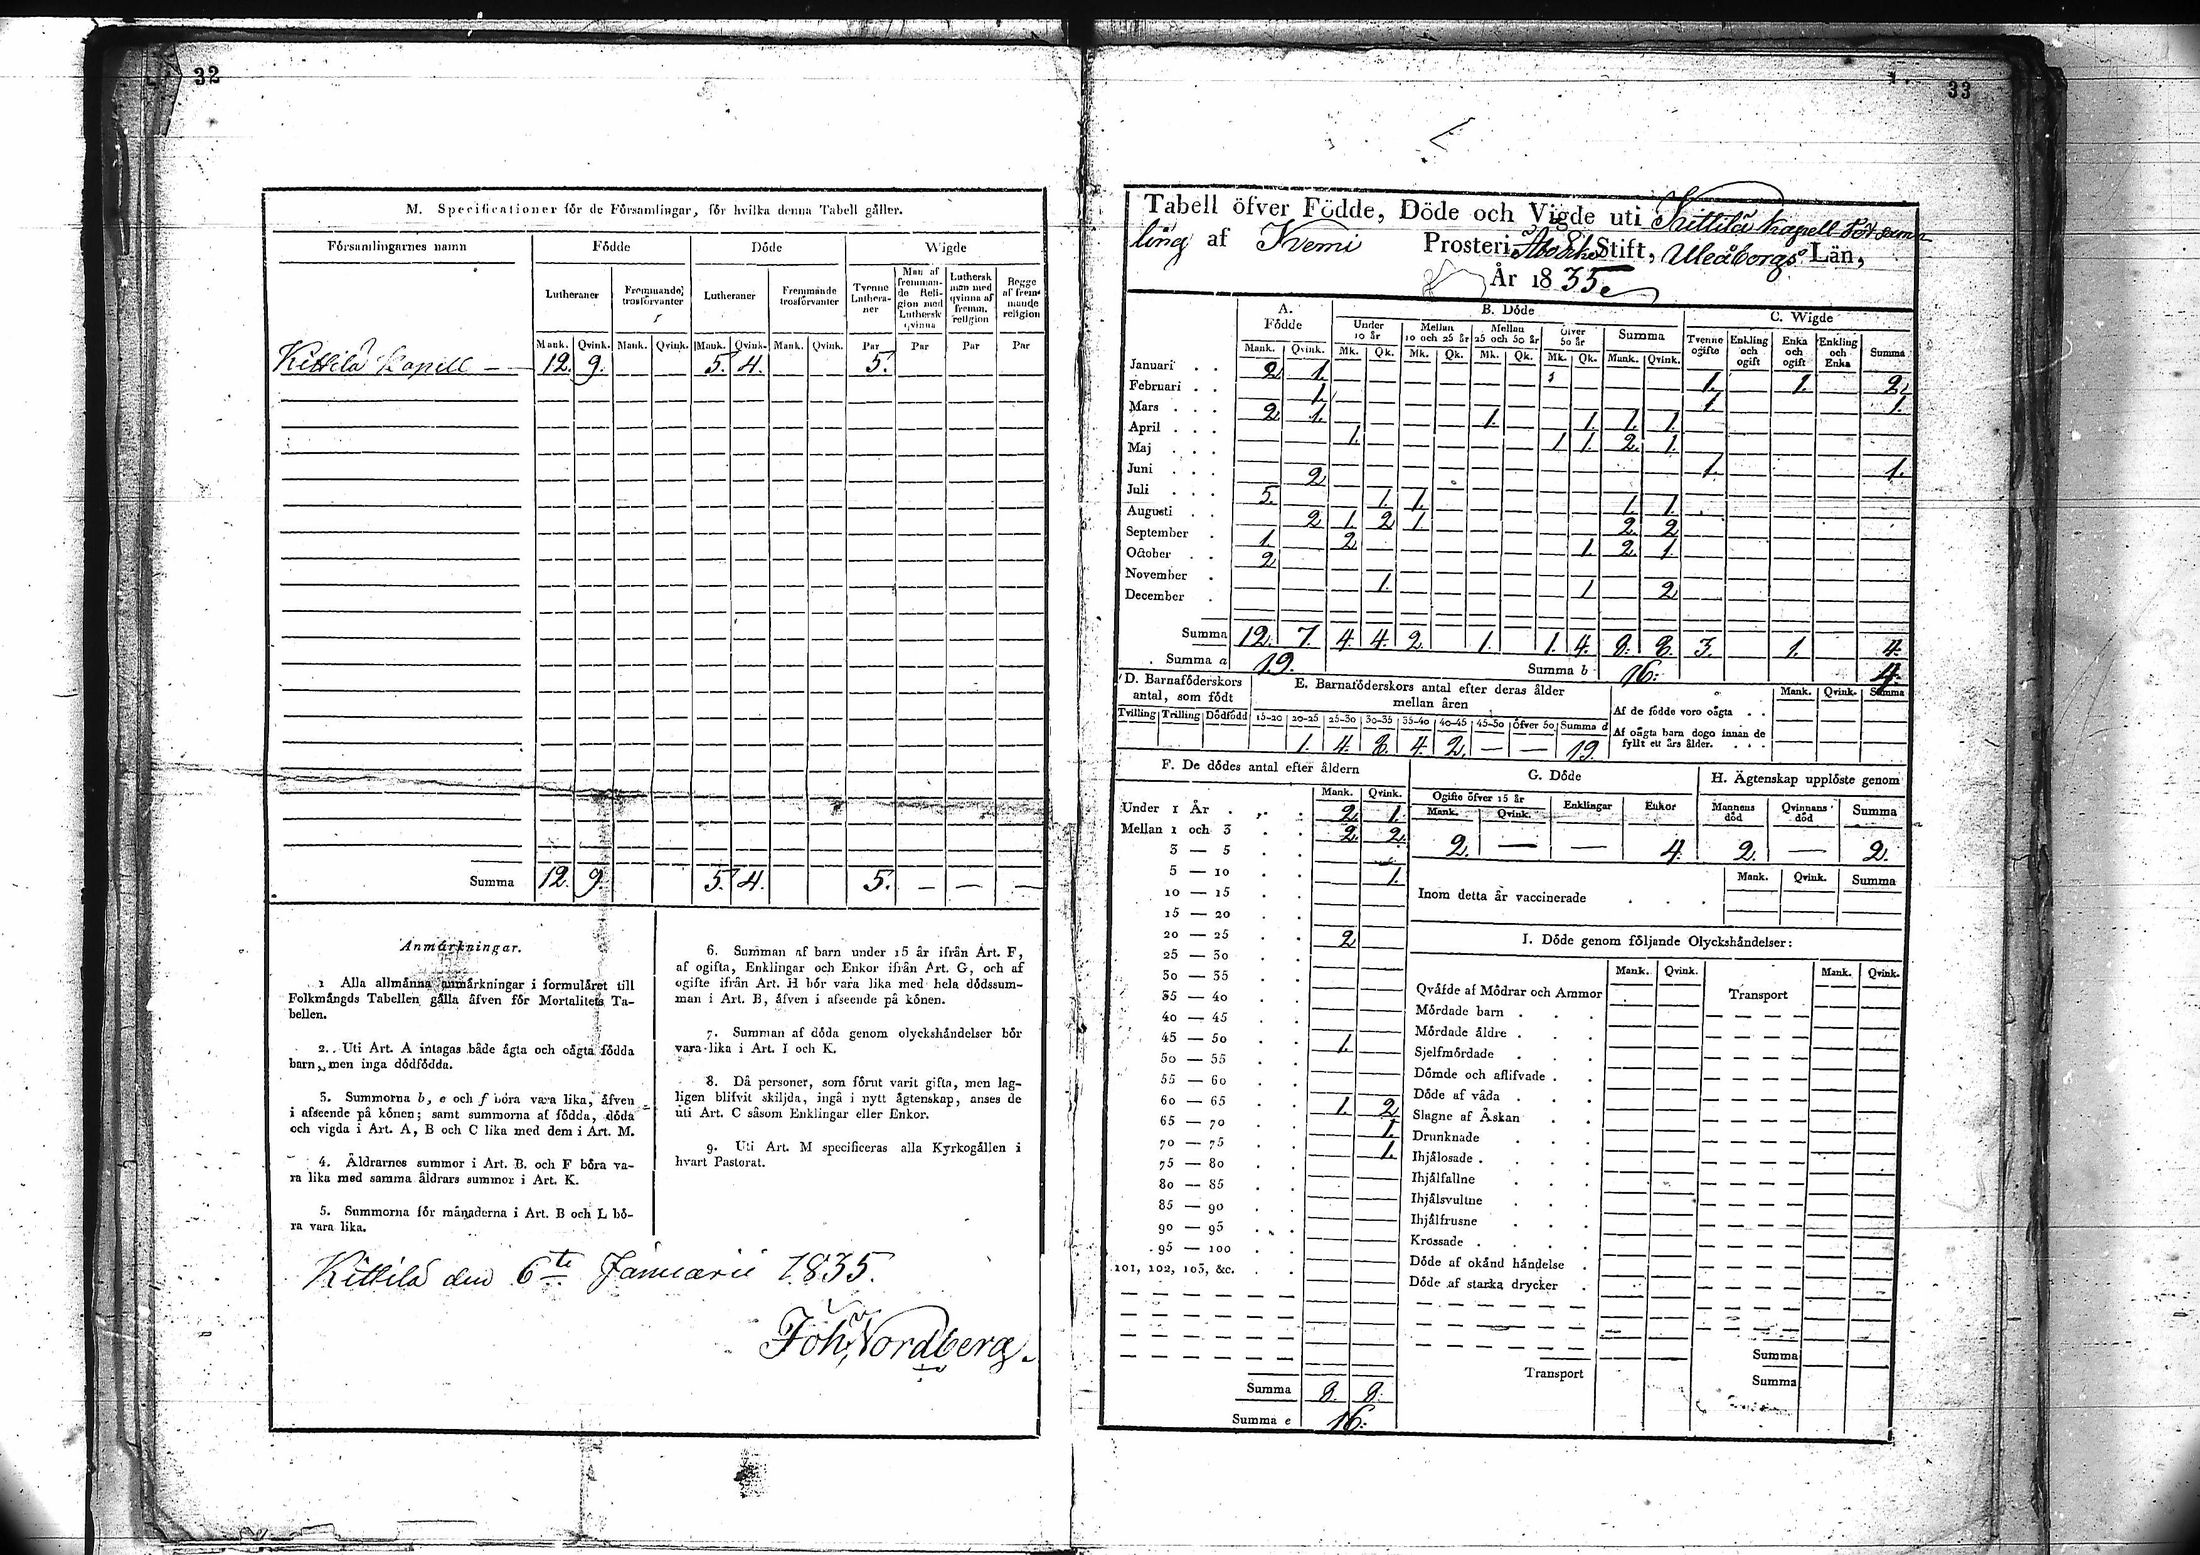 32
M. Specificationer för de Församlingar, för hvilka denna Tabell gäller.
Församlingarnes namn
Födde
Döde
Wigde
Lutheraner
Fremmande trosförvanter
Lutheraner
Fremmande trosförvanter
Tvenne Lutheraner
Man af fremmande Religion med Luthersk qvinna
Luthersk man med qvinna af fremm. religion
Begge af fremmande religion
Mank. Qvink. Mank. Qvink. Mank. Qvink. Mank. Qvink. Par Par Par Par
Kittilä Kapell — 12. 9. 5. 4. 5.
Summa 12. 9. 5. 4. 5. — — —
Anmärkningar.
1 Alla allmänna anmärkningar i formuläret till
Folkmängds Tabellen gälla äfven för Mortalitets Ta-
bellen.
2. Uti Art. A intagas både ägta och oägta födda
barn, men inga dödfödda.
3. Summorna b, e och f böra vara lika, äfven
i afseende på könen; samt summorna af födda, döda
och vigda i Art. A, B och C lika med dem i Art. M.
4. Äldrarnes summor i Art. B. och F böra va-
ra lika med samma äldrars summor i Art. K.
5. Summorna för månaderna i Art. B och L bö-
ra vara lika.
6. Summan af barn under 15 år ifrån Art. F,
af ogifta, Enklingar och Enkor ifrån Art. G, och af
ogifte ifrån Art. H bör vara lika med hela dödssum-
man i Art. B, äfven i afseende på könen.
7. Summan af döda genom olyckshändelser bör
vara lika i Art. I och K.
8. Då personer, som förut varit gifta, men lag-
ligen blifvit skiljda, ingå i nytt ägtenskap, anses de
uti Art. C såsom Enklingar eller Enkor.
9. Uti Art. M specificeras alla Kyrkogällen i
hvart Pastorat.
Kittilä den 6te Januarii 1835.
Joh. Nordberg.
33
Tabell öfver Födde, Döde och Vigde uti Kittilä Kapell Församl
ling af Kemi Prosteri, Stift, Uleåborgs Län,
År 1835.
A. Födde
B. Döde
C. Wigde
Under 10 år
Mellan 10 och 25 år
Mellan 25 och 50 år
Öfver 50 år
Summa
Tvenne ogifte
Enkling och ogift
Enka och ogift
Enkling och Enka
Summa
Mank. Qvink. Mk. Qk. Mk. Qk. Mk. Qk. Mk. Qk. Mank. Qvink.
Januari . . 2. 1. 1. 1. 2.
Februari . . 1. 1. 1.
Mars . . . 2. 1. 1. 1. 1. 1.
April . . . 1. 1 1. 2. 1.
Maj . . . 1. 1.
Juni . . . 2
Juli . . . 5. 1. 1. 1. 1.
Augusti . . 2 1. 2 1. 2. 2
September . 1. 2 1. 2. 1.
October . . 2
November . 1. 1 2
December .
Summa 12. 7. 4. 4. 2. 1. 1. 4. 8. 8. 3. 1. 4.
Summa a 19. Summa b 16. 4.
D. Barnaföderskors antal, som födt
Tvilling Trilling Dödfödd
E. Barnaföderskors antal efter deras ålder mellan åren
15-20 20-25 25-30 30-35 35-40 40-45 45-50 öfver 50 Summa d
1. 4. 8. 4. 2. — — 19.
Mank. Qvink. Summa
Af de födde voro oägta . .
Af oägta barn dogo innan de
fyllt ett års ålder. . . .
F. De dödes antal efter åldern
Mank. Qvink.
Under 1 År . . . 2. 1.
Mellan 1 och 3 . . 2. 2.
3 — 5 . .
5 — 10 . . 1.
10 — 15 . .
15 — 20 . .
20 — 25 . . 2
25 — 30 . .
30 — 35 . .
35 — 40 . .
40 — 45 . .
45 — 50 . . 1.
50 — 55 . .
55 — 60 . .
60 — 65 . . 1. 2.
65 — 70 . . 1.
70 — 75 . . 1.
75 — 80 . .
80 — 85 . .
85 — 90 . .
90 — 95 . .
95 — 100 . .
101, 102, 103, &c. . .
Summa 8. 8.
Summa e 16.
G. Döde
Ogifte öfver 15 år
Enklingar
Enkor
Mank. Qvink.
2. — — 4.
H. Ägtenskap upplöste genom
Mannens död
Qvinnans död
Summa
2. — 2.
Mank. Qvink. Summa
Inom detta år vaccinerade . . .
I. Döde genom följande Olyckshändelser:
Mank. Qvink. Mank. Qvink.
Qväfde af Mödrar och Ammor
Transport
Mördade barn . . .
Mördade äldre . . .
Sjelfmördade . . .
Dömde och aflifvade . .
Döde af våda . . .
Slagne af Åskan . .
Drunknade . . .
Ihjälosade . . . .
Ihjälfallne . . .
Ihjälsvultne . . .
Ihjälfrusne . . .
Krossade . . . .
Döde af okänd händelse .
Döde af starka drycker .
Transport
Summa
Summa